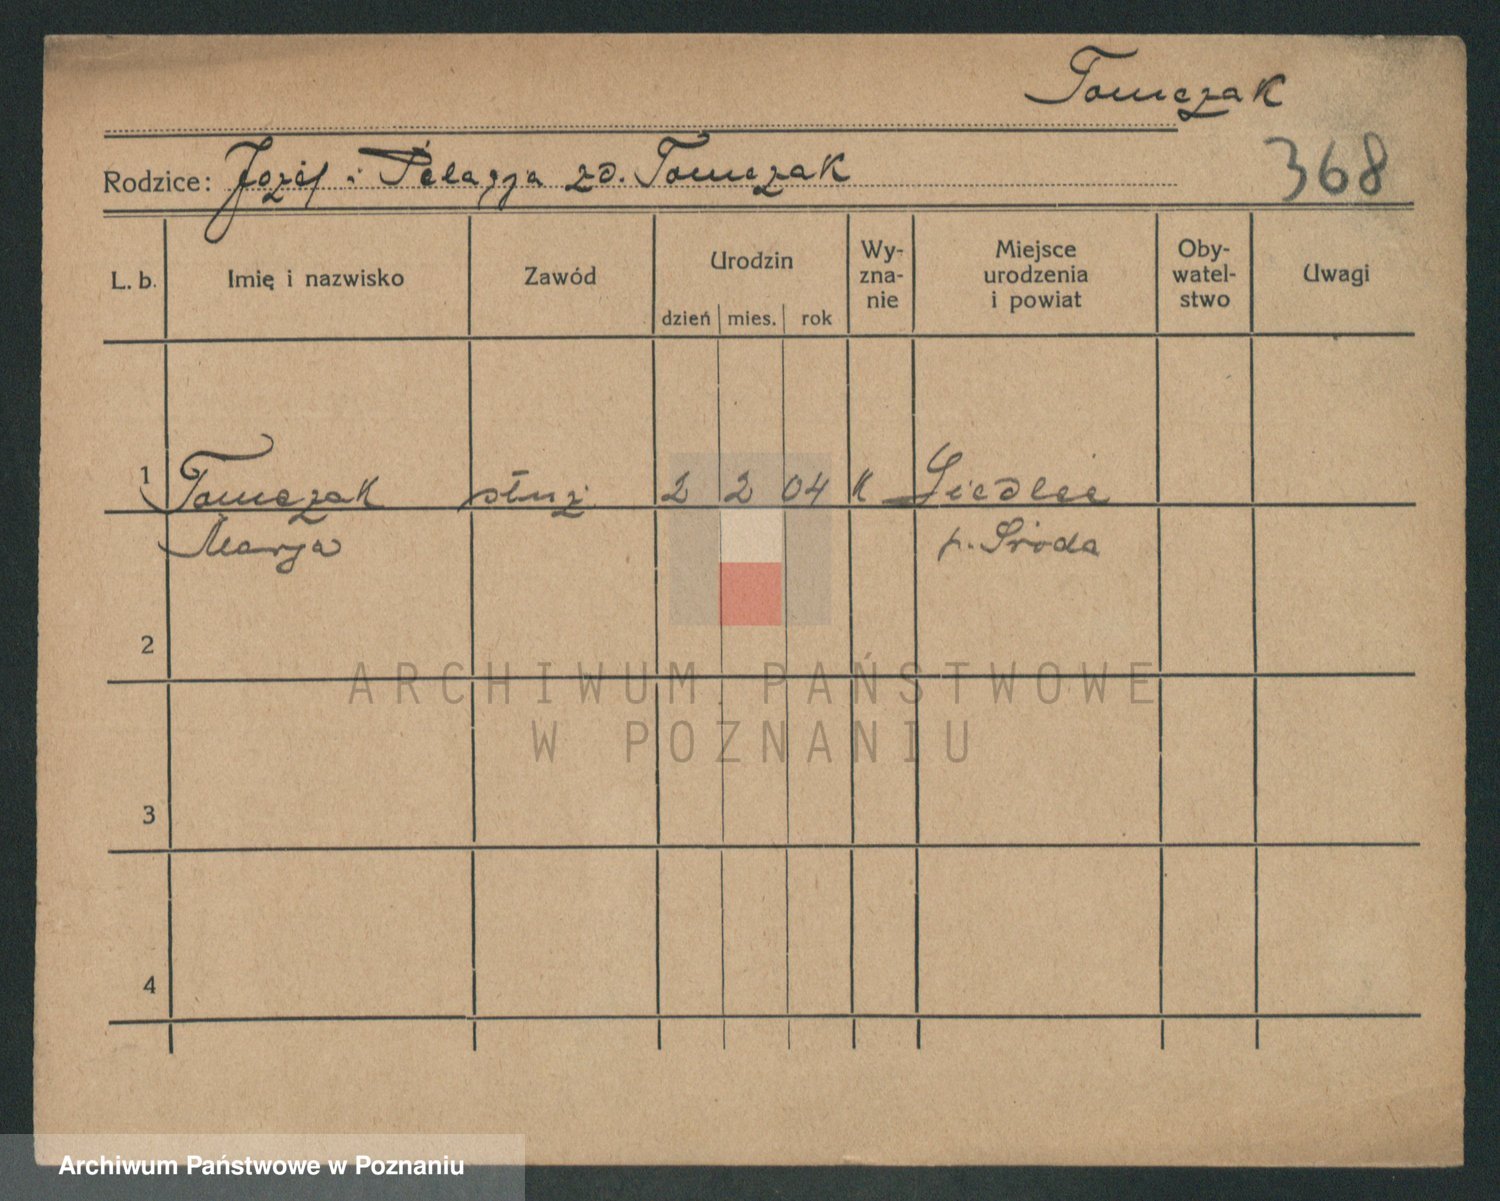 Tomczak
368
Rodzice: Józef i Pelagja zd. Tomczak
L. b.
Imię i nazwisko
Zawód
Urodzin
dzień mies. rok
Wy-
zna-
nie
Miejsce
urodzenia
i powiat
Oby-
watel-
stwo
Uwagi
1 Tomczak służ 2 2 04 K Siedlec
Marja p. Środa
2
3
4
ARCHIWUM PAŃSTWOWE
W POZNANIU
Archiwum Państwowe w Poznaniu